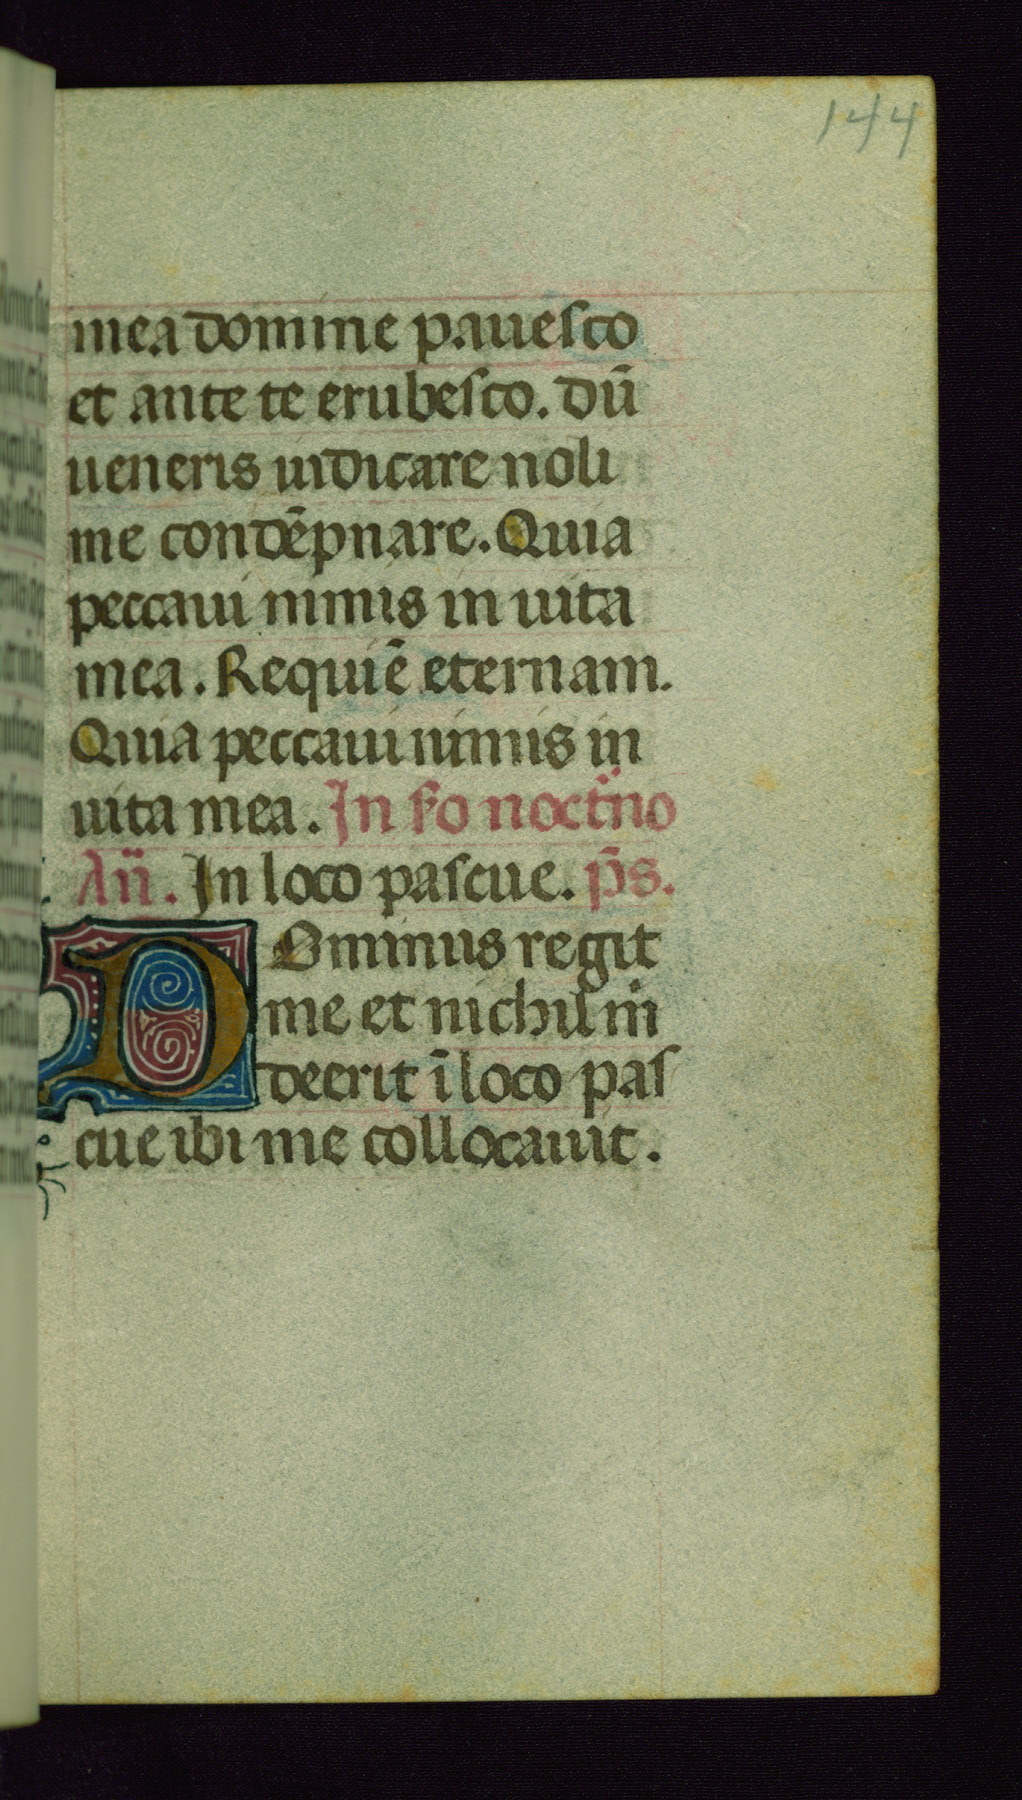 144
mea domine pauesco
et ante te erubesco. dū
ueneris iudicare noli
me condēpnare. Quia
peccaui nimis in uita
mea. Requiē eternam.
Quia peccaui nimis in
uita mea. In s̄o noct̄no
Añ. In loco pascue. p̄s.
Dominus regit
me et nichil m̄
deerit ī loco pas
cue ibi me collocauit.